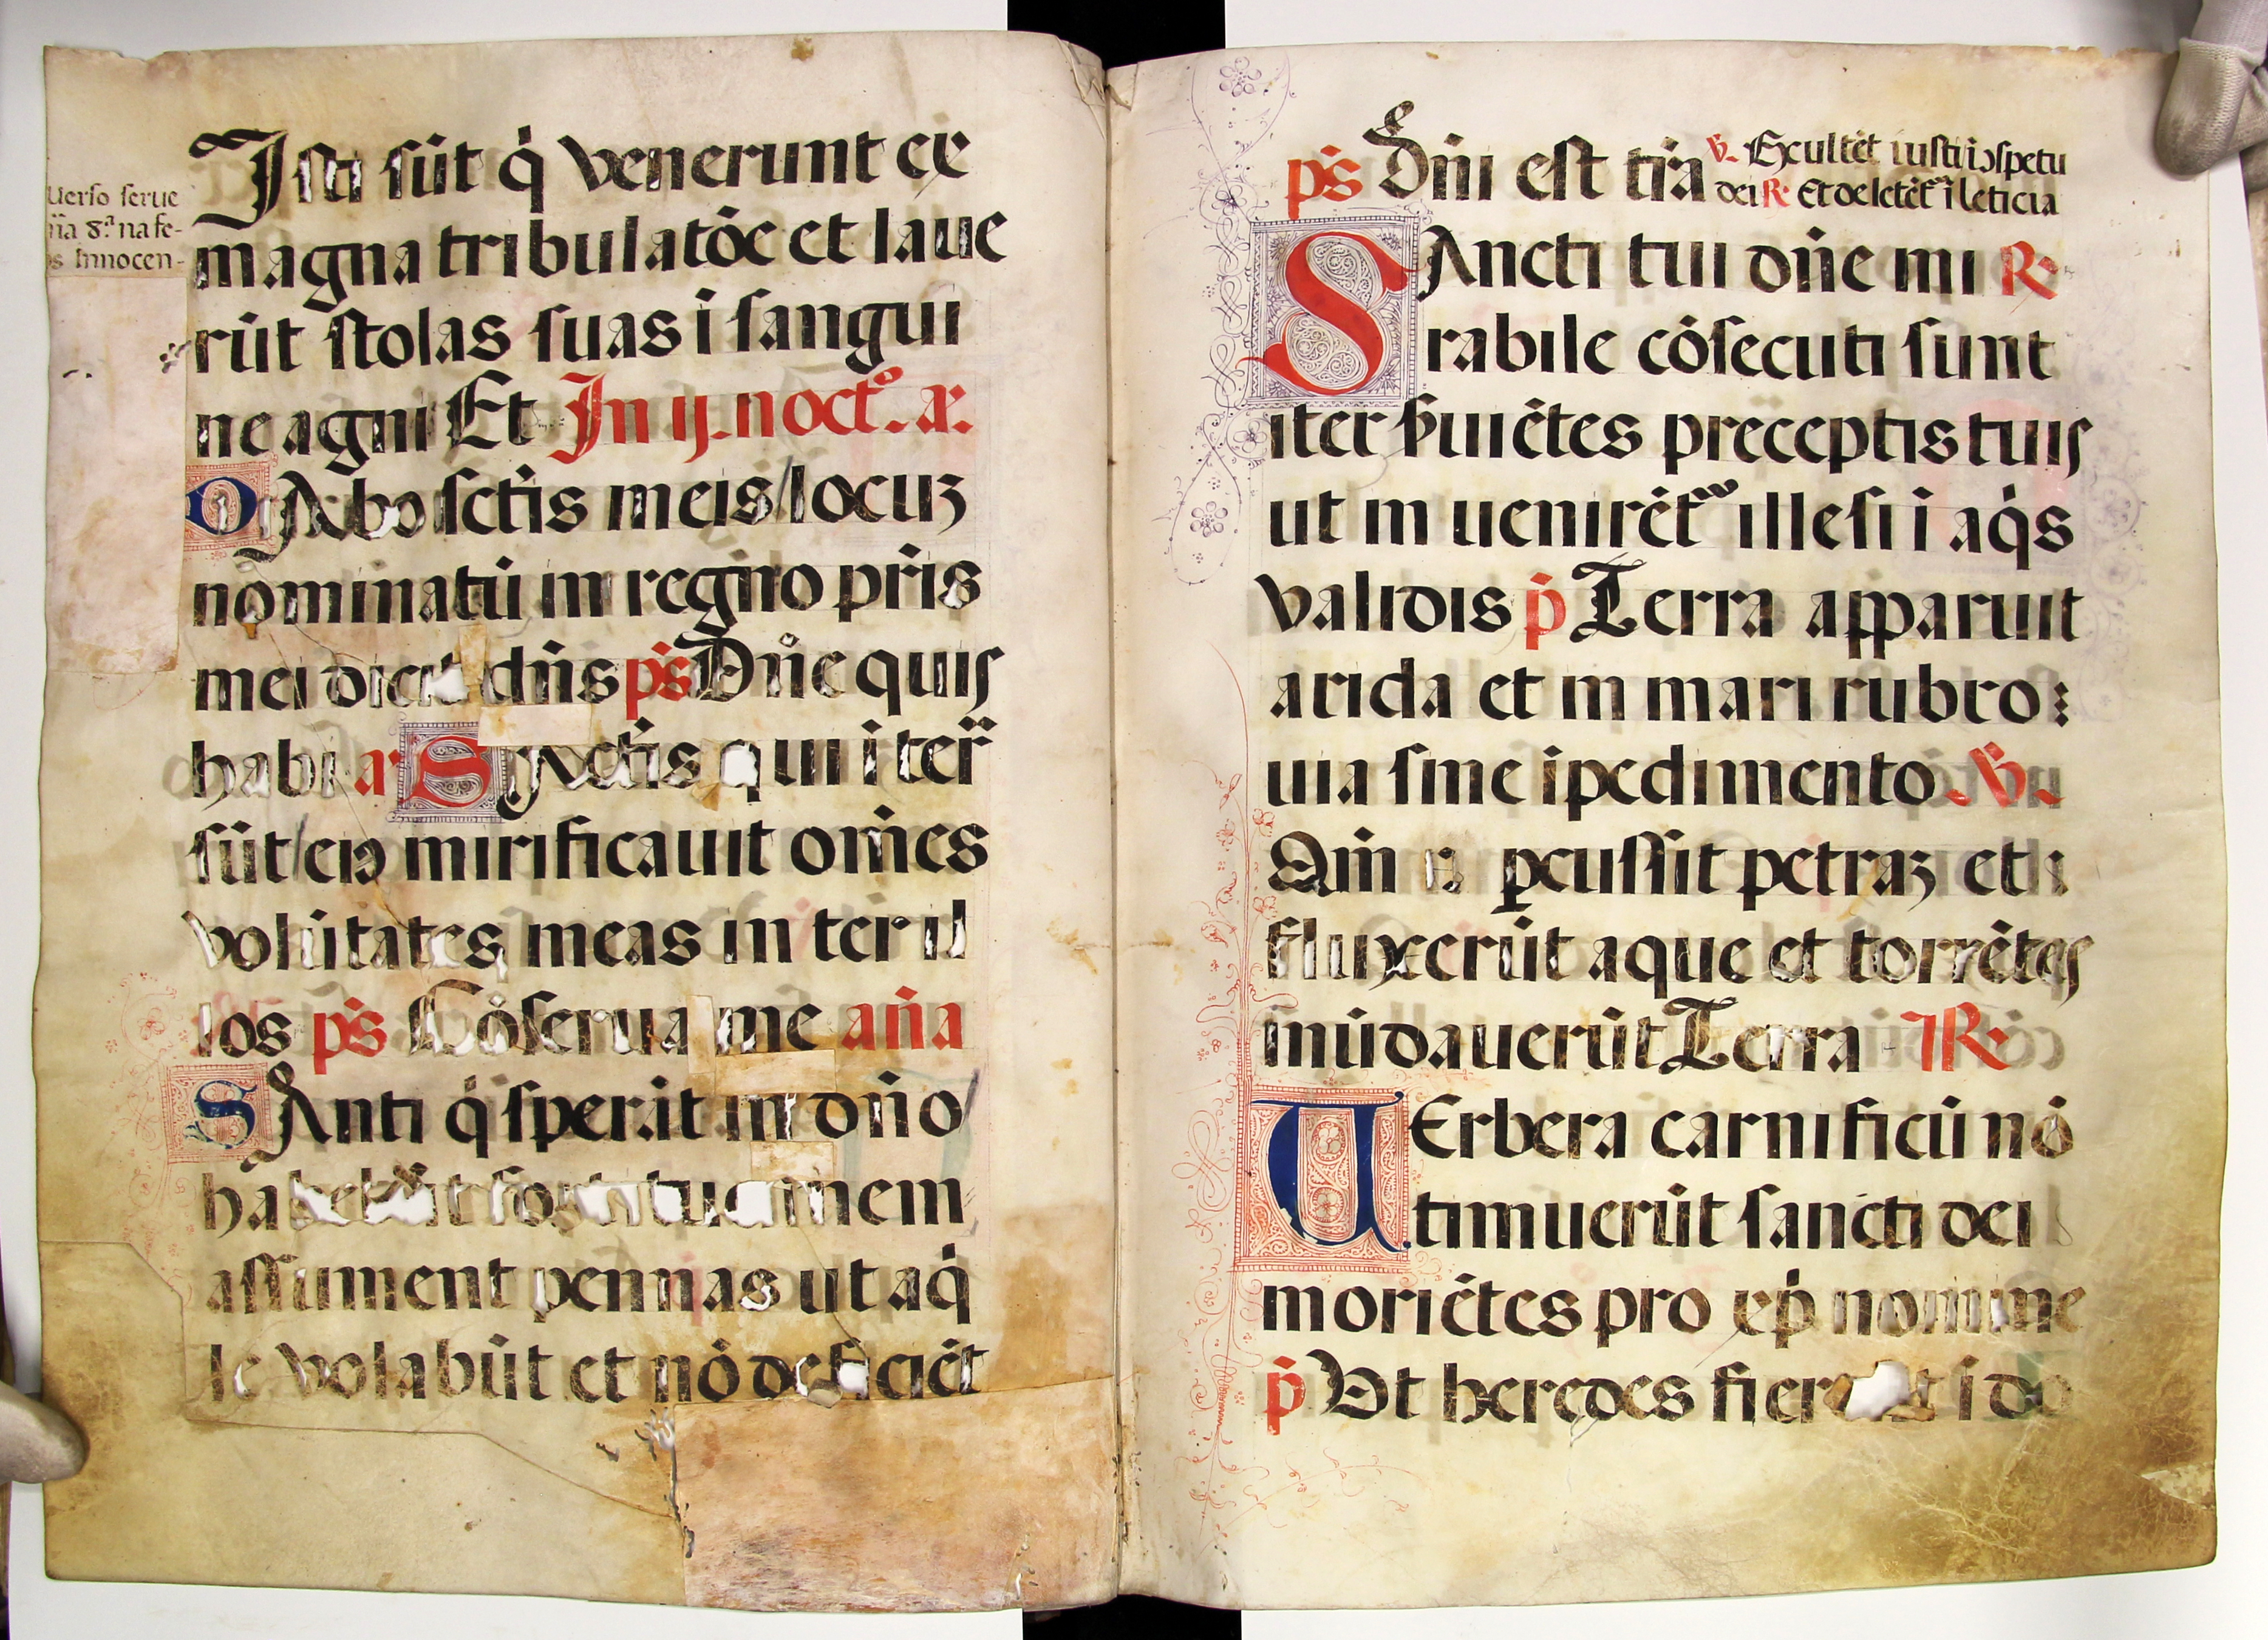 Uerso serue
na 8.ª na fe-
s Innocen-
Isti sūt q̇ venerunt ex
magna tribulatōe et laue
rūt stolas suas i sangui
ne agni Et In ij. noct.º aꝛ.
DAbo sctīs meis/locuʒ
nominatū in regno pr̄is
mei dicit dn̄s ps̄ Dn̄e quis
habi aꝛ SAnctis qui i terr̄
sūt/eiꝰ mirificauit om̄es
volūtates meas in ter il
los ps̄ Cōserua me an̄a
SAnti q̇ sperāt in dn̄o/
habebūt fortitudinem
assument pennas ut aq̇
le volabūt et nō deficiēt
ps̄ Dn̄i est tr̄a ℣. Excultēt iusti i ↄspetu
dei R. Et delectēt² ī leticia
SAncti tui dn̄e mi R.
rabile cōsecuti sunt
iter ẜuiētes preceptis tuis
ut in uenirēt² illesi i aq̇s
validis ṗ Terra apparuit
arida et in mari rubro:
uia sine ipedimento ℣.
Qm̄ ꝑcussit petraʒ et
fluxerūt aque et torrētes
inūdauerūt Terra ℟.
UErbera carnificū nō
timuerūt sancti dei
moriētes pro xp̄i nomine
ṗ Ut heredes fierent i do